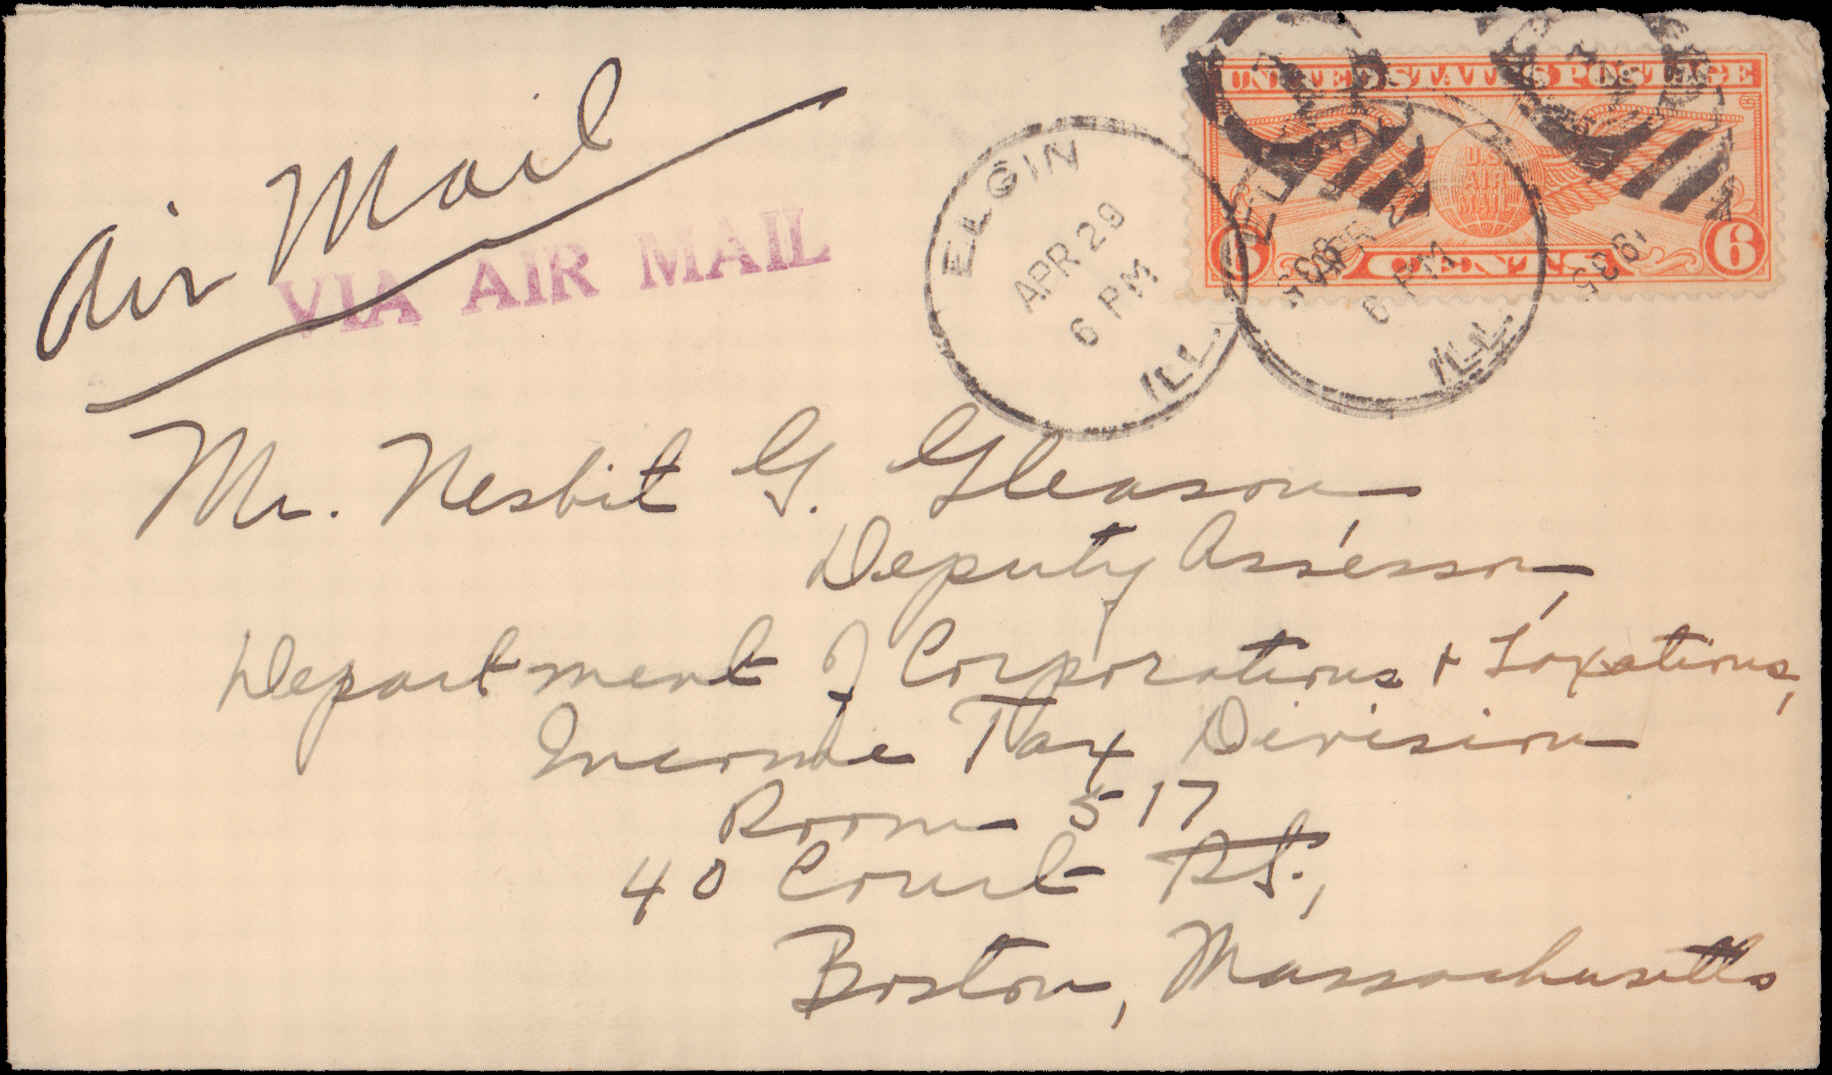 Air Mail
VIA AIR MAIL
UNITED STATES POSTAGE
U.S.
AIR
MAIL
6 CENTS 6
ELGIN
APR 29
6 PM
ILL.
1935
ELGIN
APR 2
6 PM
ILL.
1935
Mr. Nesbit G. Gleason
Deputy Assessor,
Department of Corporations + Taxations,
Income Tax Division
Room 517
40 Court St.,
Boston, Massachusetts